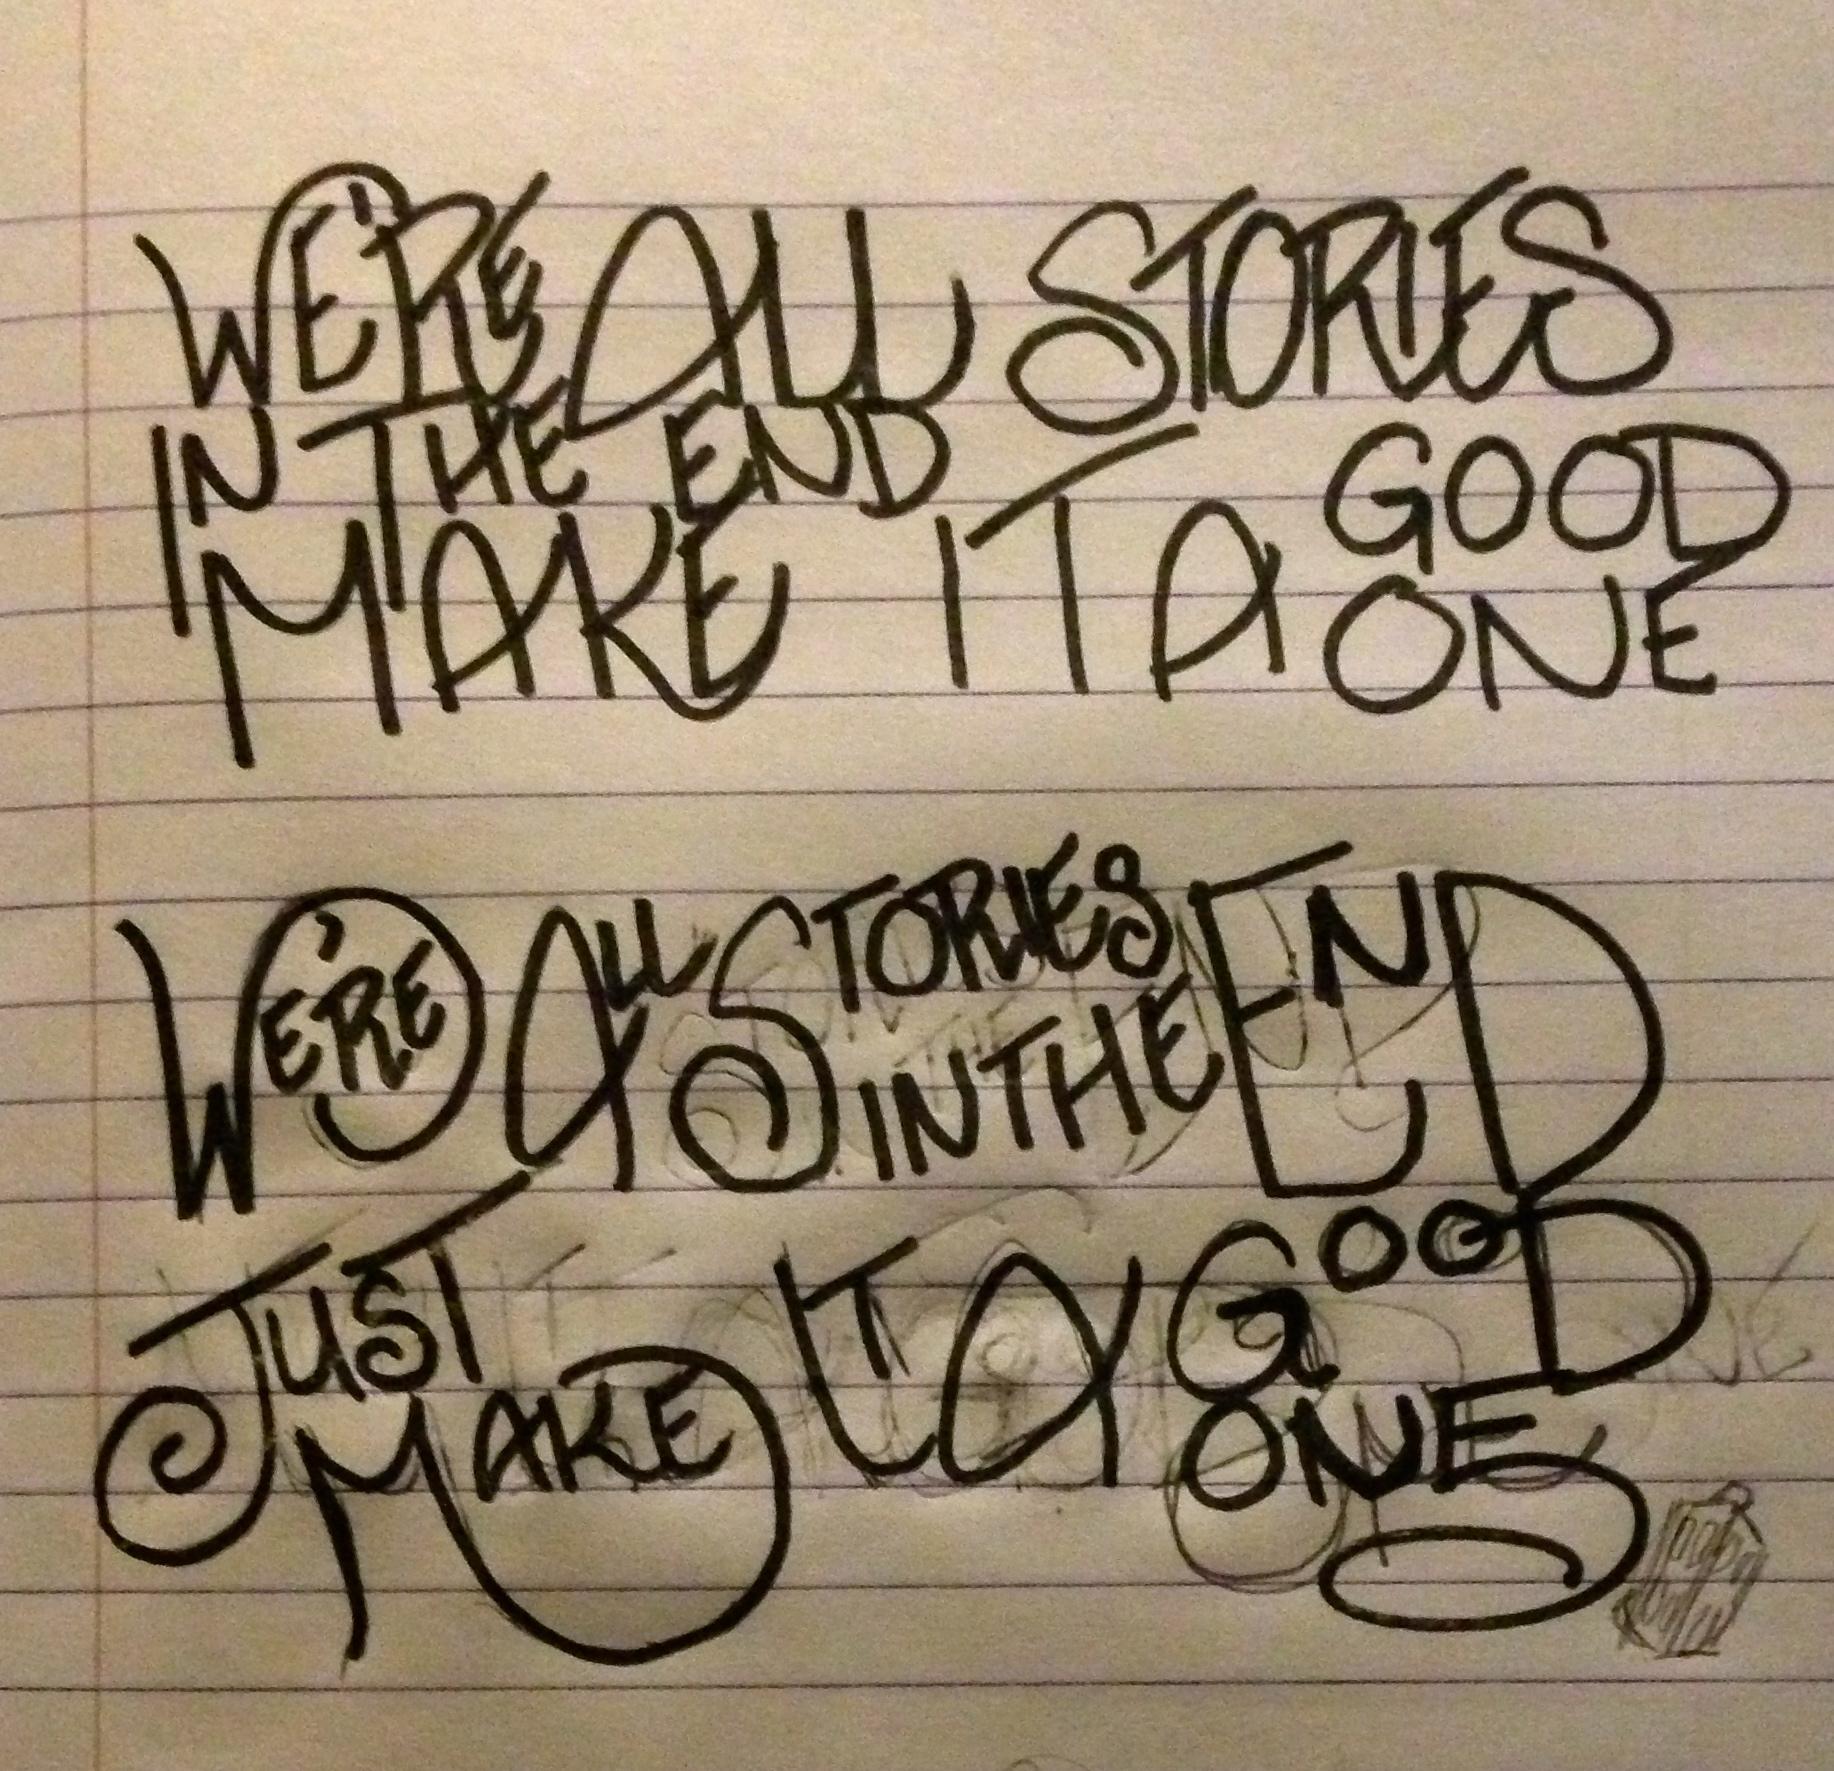 WE'RE ALL STORIES
IN THE END
MAKE IT A GOOD
ONE
WE'RE ALL STORIES
IN THE END
JUST
MAKE IT A GOOD
ONE